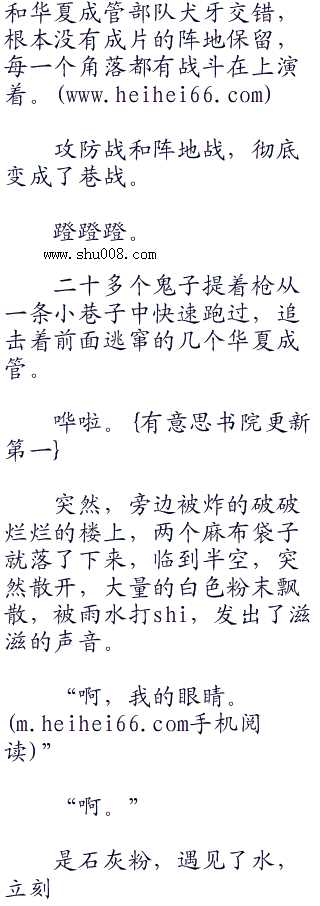 和华夏成管部队犬牙交错，
根本没有成片的阵地保留，
每一个角落都有战斗在上演
着。(www.heihei66.com)
攻防战和阵地战，彻底
变成了巷战。
蹬蹬蹬。
www.shu008.com
二十多个鬼子提着枪从
一条小巷子中快速跑过，追
击着前面逃窜的几个华夏成
管。
哗啦。{有意思书院更新
第一}
突然，旁边被炸的破破
烂烂的楼上，两个麻布袋子
就落了下来，临到半空，突
然散开，大量的白色粉末飘
散，被雨水打shi，发出了滋
滋的声音。
“啊，我的眼睛。
(m.heihei66.com手机阅
读)”
“啊。”
是石灰粉，遇见了水，
立刻